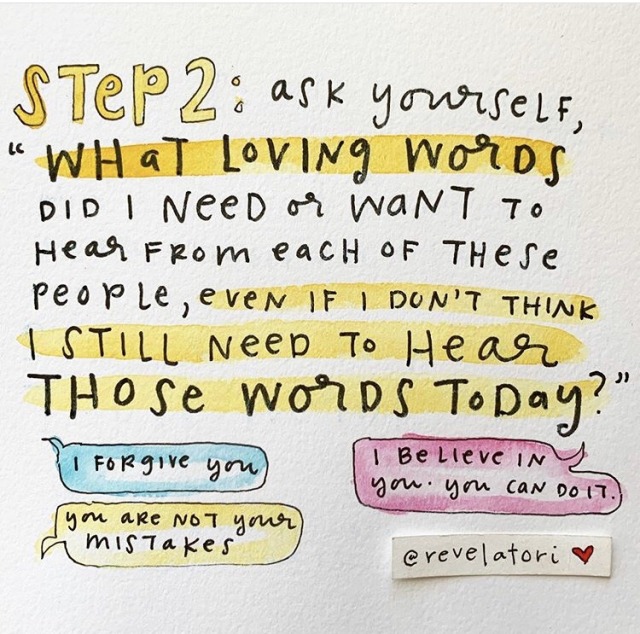 STEP 2: ASK YOURSELF,
"WHAT LOVING WORDS
DID I NEED OR WANT TO
HEAR FROM EACH OF THESE
PEOPLE, EVEN IF I DON'T THINK
I STILL NEED TO HEAR
THOSE WORDS TODAY?"
I FORGIVE YOU
YOU ARE NOT YOUR
MISTAKES
I BELIEVE IN
YOU. YOU CAN DO IT.
@revelatori